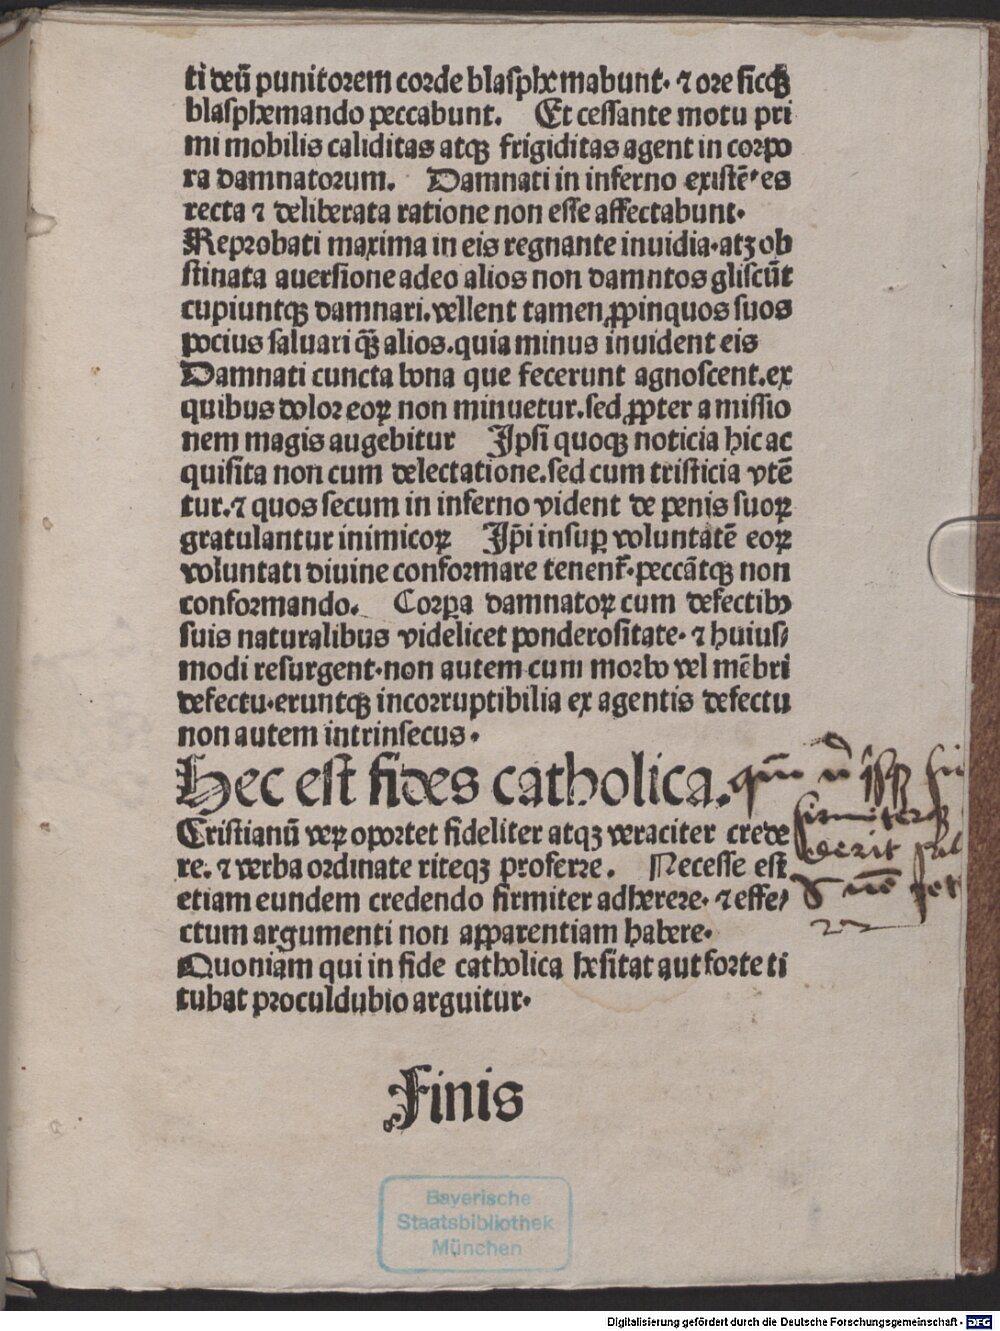 ti deū punitorem corde blasphemabunt· ⁊ ore sicqꝫ
blasphemando peccabunt. Et cessante motu pri
mi mobilis caliditas atqꝫ frigiditas agent in corpo
ra damnatorum. Damnati in inferno existē⸗es
recta ⁊ deliberata ratione non esse affectabunt·
Reprobati maxima in eis regnante inuidia·atꝫ ob
stinata auersione adeo alios non damntos gliscūt
cupiuntqꝫ damnari.vellent tamen ꝓpinquos suos
pocius saluari qꝫ̄ alios.quia minus inuident eis
Damnati cuncta bona que fecerunt agnoscent.ex
quibus dolor eoꝝ non minuetur.sed ꝓpter amissio
nem magis augebitur Ipsi quoqꝫ noticia hic ac
quisita non cum delectatione.sed cum tristicia vtē
tur.⁊ quos secum in inferno vident de penis suoꝝ
gratulantur inimicoꝝ Ip̄i insuꝑ voluntatē eoꝝ
voluntati diuine conformare tenent̄·peccātqꝫ non
conformando. Corꝑa damnatoꝝ cum defectibꝫ
suis naturalibus videlicet ponderositate· ⁊ huius/
modi resurgent·non autem cum morbo vel mēbri
defectu·eruntqꝫ incorruptibilia ex agentis defectu
non autem intrinsecus·
Hec est fides catholica.
Cristianū veꝝ oportet fideliter atqꝫ veraciter crede
re: ⁊ verba ordinate riteqꝫ proferre. Necesse est
etiam eundem credendo firmiter adherere· ⁊ effe/
ctum argumenti non apparentiam habere·
Quoniam qui in fide catholica hesitat aut forte ti
tubat proculdubio arguitur·
Finis
Bayerische
Staatsbibliothek
München
Digitalisierung gefördert durch die Deutsche Forschungsgemeinschaft - DFG